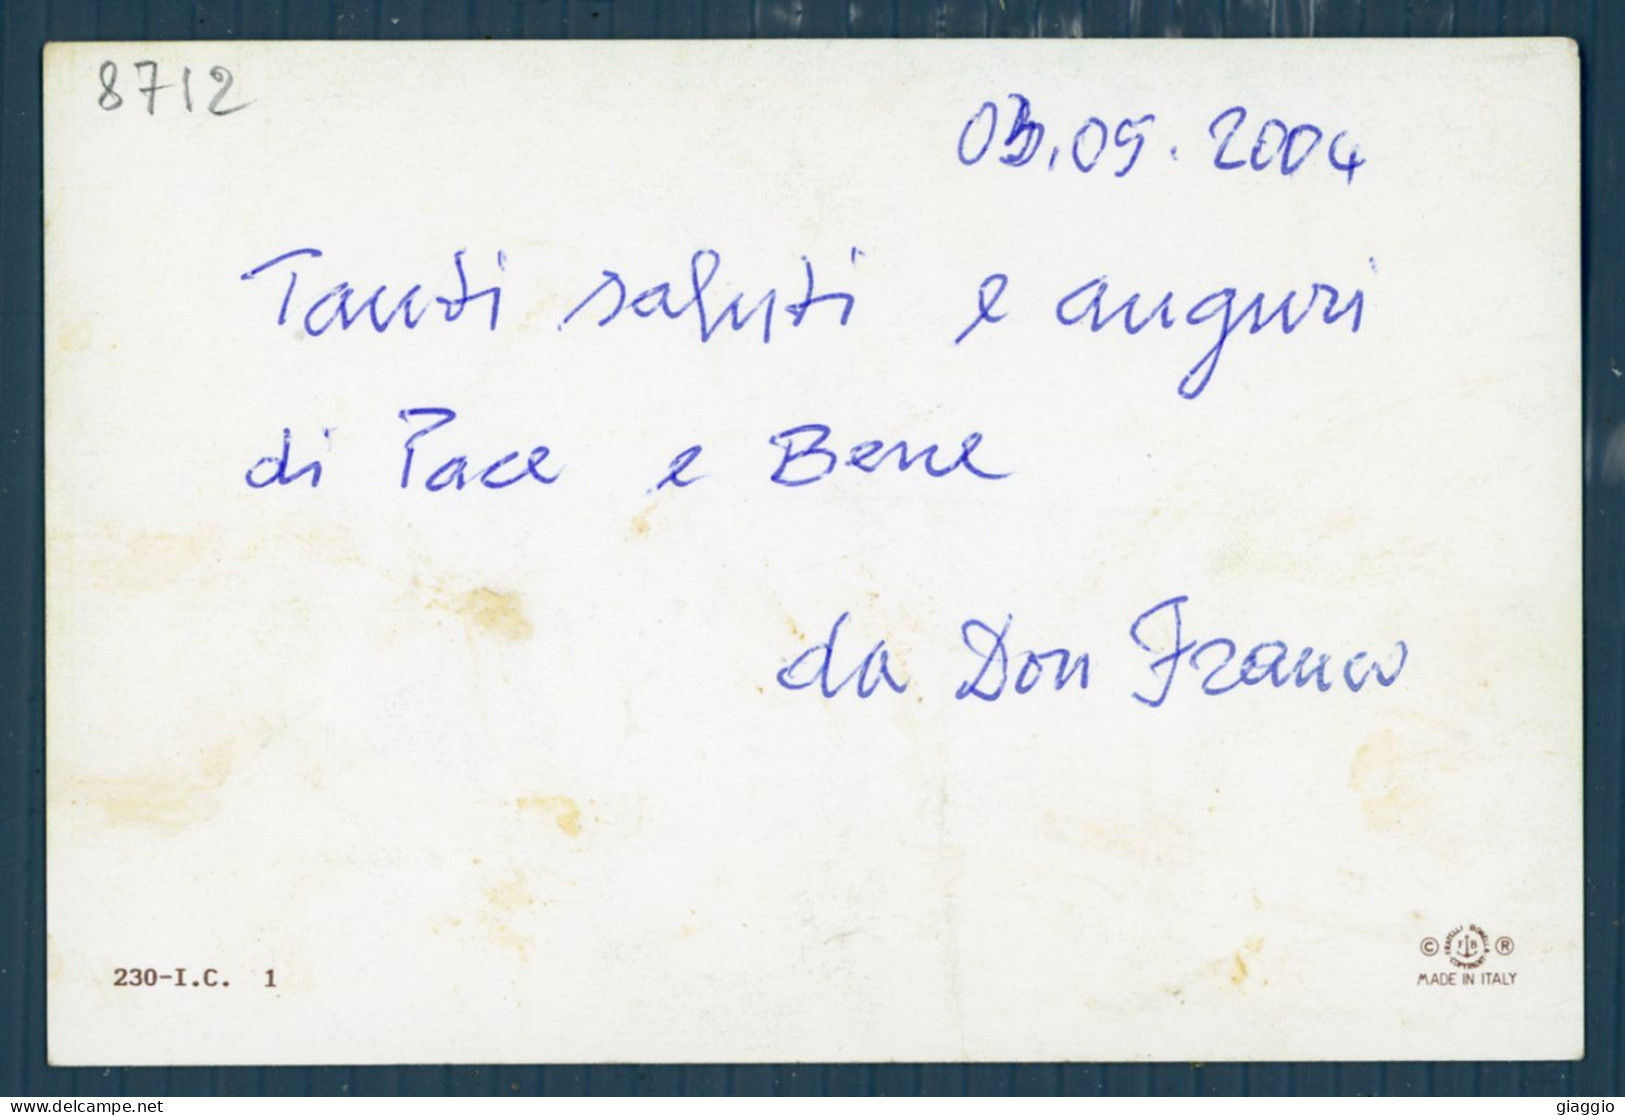 8712
03.05.2004
Tanti saluti e auguri
di Pace e Bene
da Don Franco
230-I.C. 1
© FRATELLI BONELLA COPYRIGHT FB ®
MADE IN ITALY
delcampe.net
giaggio